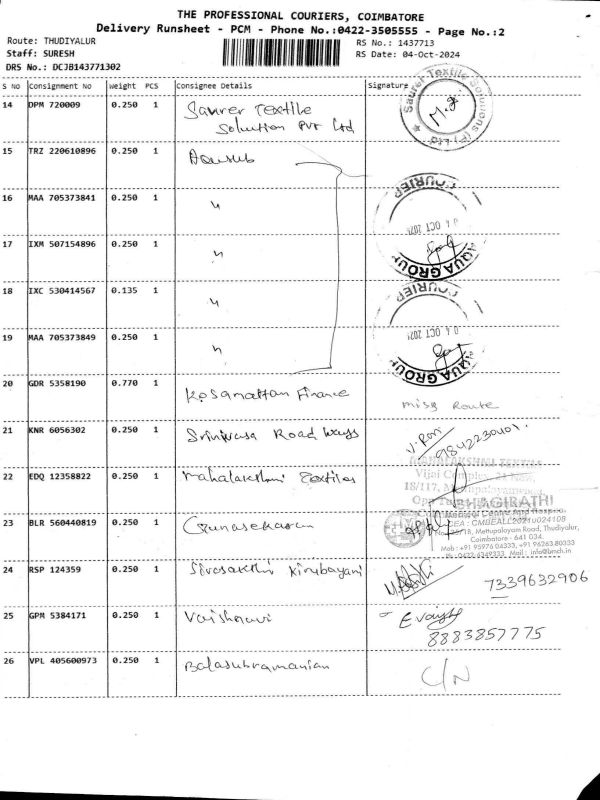 THE PROFESSIONAL COURIERS, COIMBATORE
Delivery Runsheet - PCM - Phone No.:0422-3505555 - Page No.:2
Route: THUDIYALUR
RS No.: 1437713
Staff: SURESH
RS Date: 04-Oct-2024
DRS No.: DCJB143771302
S NO Consignment No Weight PCS Consignee Details Signature
14 DPM 720009 0.250 1 Saurer Textile
Solution Pvt Ltd
Saurer Textile Solutions (P) Ltd
15 TRZ 220610896 0.250 1
16 MAA 705373841 0.250 1 "
COURIER
04 OCT 202
AQUA GROUP
17 IXM 507154896 0.250 1 "
18 IXC 530414567 0.135 1 "
COURIER
04 OCT 202
AQUA GROUP
19 MAA 705373849 0.250 1 "
20 GDR 5358190 0.770 1 Kosamattam Finance misg Route
21 KNR 6056302 0.250 1 Srinivasa Road Ways V. Rani
9842230401.
22 EDQ 12358822 0.250 1 Mahalakshmi Textiles
MAHALAKSHMI TEXTILE
Vijai Complex
18/117,
BHAGIRATHI
23 BLR 560440819 0.250 1 Gunasekaran
Medical Centre And Hospital
CEA : CMBEALL2021u02410B
Mettupalayam Road, Thudiyalur,
Coimbatore - 641 034.
Mob : +91 95976 04333, +91 96263 80333
Ph: 0422 6349333 Mail : info@bmch.in
24 RSP 124359 0.250 1 Sivasakthi Kirubayani 7339632906
25 GPM 5384171 0.250 1 Vaishnavi E. Vaish
8883857775
26 VPL 405600973 0.250 1 Balasubramanian C/N